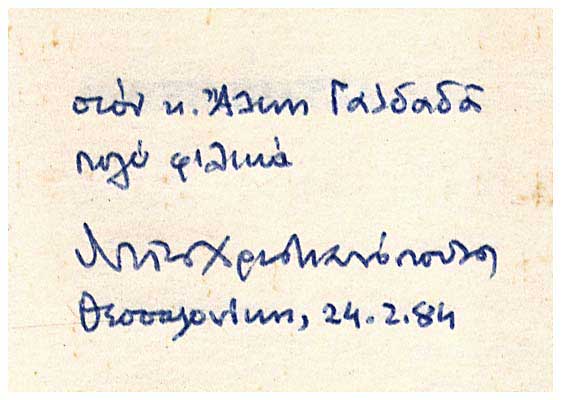 στόν κ. Ἄλκη Γαλδαδᾶ
πολύ φιλικά
Ντίνος Χριστιανόπουλος
Θεσσαλονίκη, 24.2.84